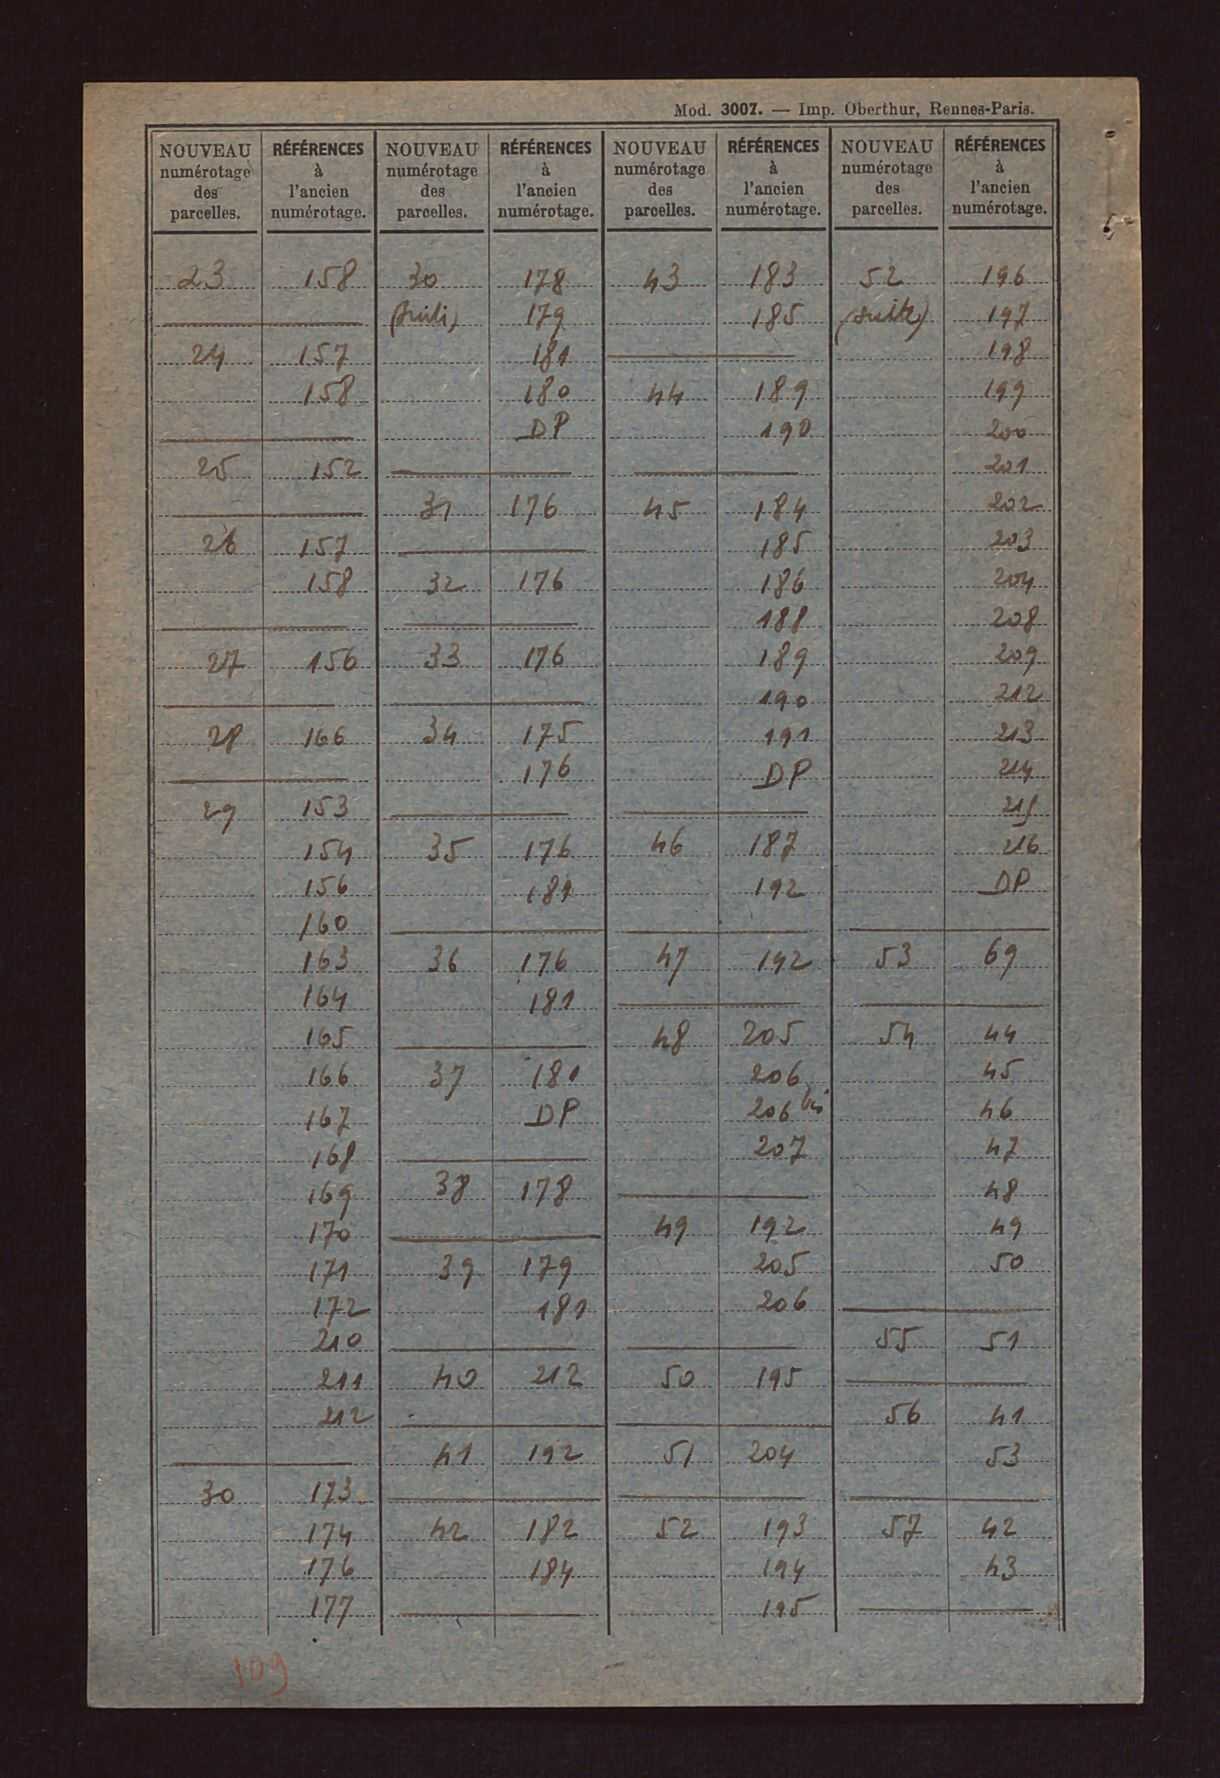 Mod. 3007. — Imp. Oberthur, Rennes-Paris.
NOUVEAU numérotage des parcelles. RÉFÉRENCES à l'ancien numérotage. NOUVEAU numérotage des parcelles. RÉFÉRENCES à l'ancien numérotage. NOUVEAU numérotage des parcelles. RÉFÉRENCES à l'ancien numérotage. NOUVEAU numérotage des parcelles. RÉFÉRENCES à l'ancien numérotage.
23 158 30 178 43 183 52 196
(suite) 179 185 (suite) 197
24 157 181 198
158 180 44 189 199
DP 190 200
25 152 201
31 176 45 184 202
26 157 185 203
158 32 176 186 204
188 208
27 156 33 176 189 209
190 212
28 166 34 175 191 213
176 DP 214
29 153 215
154 35 176 46 187 216
156 181 192 DP
160
163 36 176 47 192 53 69
164 181
165 48 205 54 44
166 37 181 206 45
167 DP 206 bis 46
168 207 47
169 38 178 48
170 49 192 49
171 39 179 205 50
172 181 206
210 55 51
211 40 212 50 195
212 56 41
41 192 51 204 53
30 173
174 42 182 52 193 57 42
176 184 194 43
177 195
109